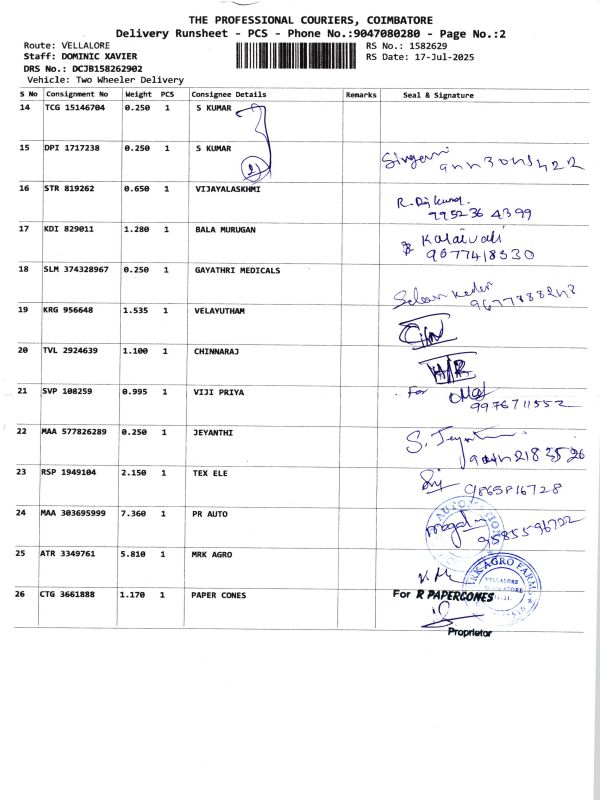 THE PROFESSIONAL COURIERS, COIMBATORE
Delivery Runsheet - PCS - Phone No.:9047080280 - Page No.:2
Route: VELLALORE RS No.: 1582629
Staff: DOMINIC XAVIER RS Date: 17-Jul-2025
DRS No.: DCJB158262902
Vehicle: Two Wheeler Delivery
S No Consignment No Weight PCS Consignee Details Remarks Seal & Signature
14 TCG 15146704 0.250 1 S KUMAR
15 DPI 1717238 0.250 1 S KUMAR
16 STR 819262 0.650 1 VIJAYALASKHMI
R. Raj kumar
9952364399
17 KDI 829011 1.280 1 BALA MURUGAN
Kalaivali
9677418530
18 SLM 374328967 0.250 1 GAYATHRI MEDICALS
19 KRG 956648 1.535 1 VELAYUTHAM
20 TVL 2924639 1.100 1 CHINNARAJ
21 SVP 108259 0.995 1 VIJI PRIYA
For
9976711552
22 MAA 577826289 0.250 1 JEYANTHI
23 RSP 1949104 2.150 1 TEX ELE
9865816728
24 MAA 303695999 7.360 1 PR AUTO
AUTO
9585596722
25 ATR 3349761 5.810 1 MRK AGRO
MRK AGRO FARM
VELLALORE
26 CTG 3661888 1.170 1 PAPER CONES
For R PAPERCONES
Proprietor